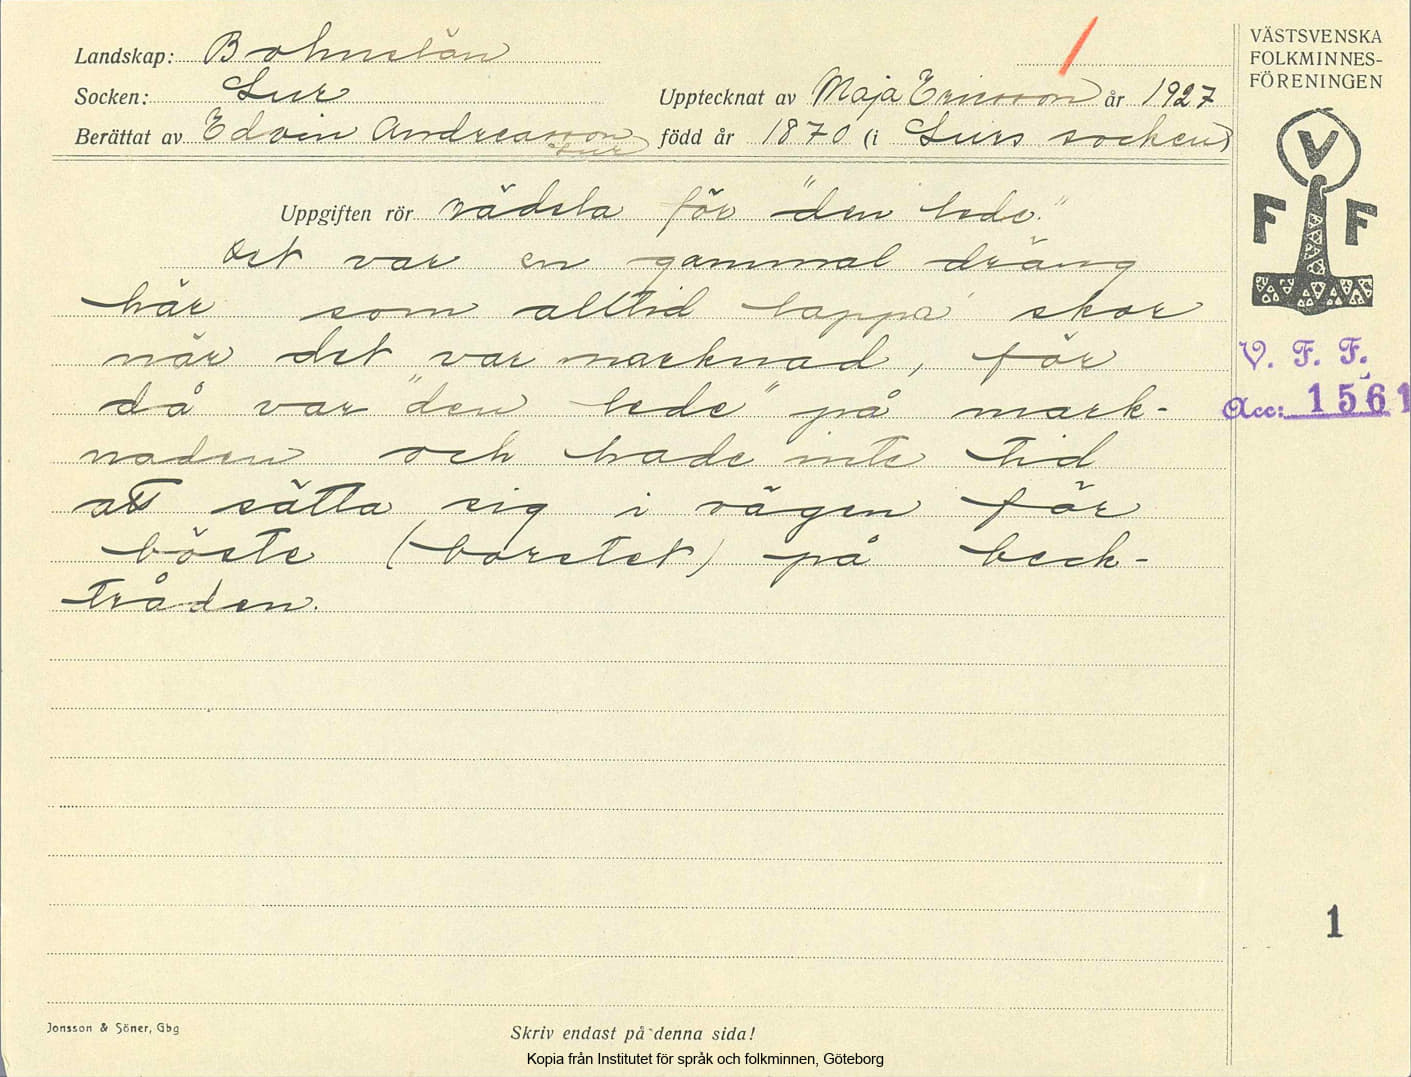 Landskap: Bohuslän
Socken: Lur
Upptecknat av Maja Ericsson år 1927
Berättat av Edvin Andreasson Lur
född år 1870 (i Lurs socken)
VÄSTSVENSKA
FOLKMINNES-
FÖRENINGEN
V
F F
Uppgiften rör rädsla för "den lede."
Det var en gammal dräng
här som alltid lappa' skor
när det var marknad, för
då var "den lede" på mark-
naden och hade inte tid
att sätta sig i vägen för
böste (borstet) på beck-
tråden.
V. F. F.
Acc: 1561
1
Jonsson & Söner, Gbg
Skriv endast på denna sida!
Kopia från Institutet för språk och folkminnen, Göteborg